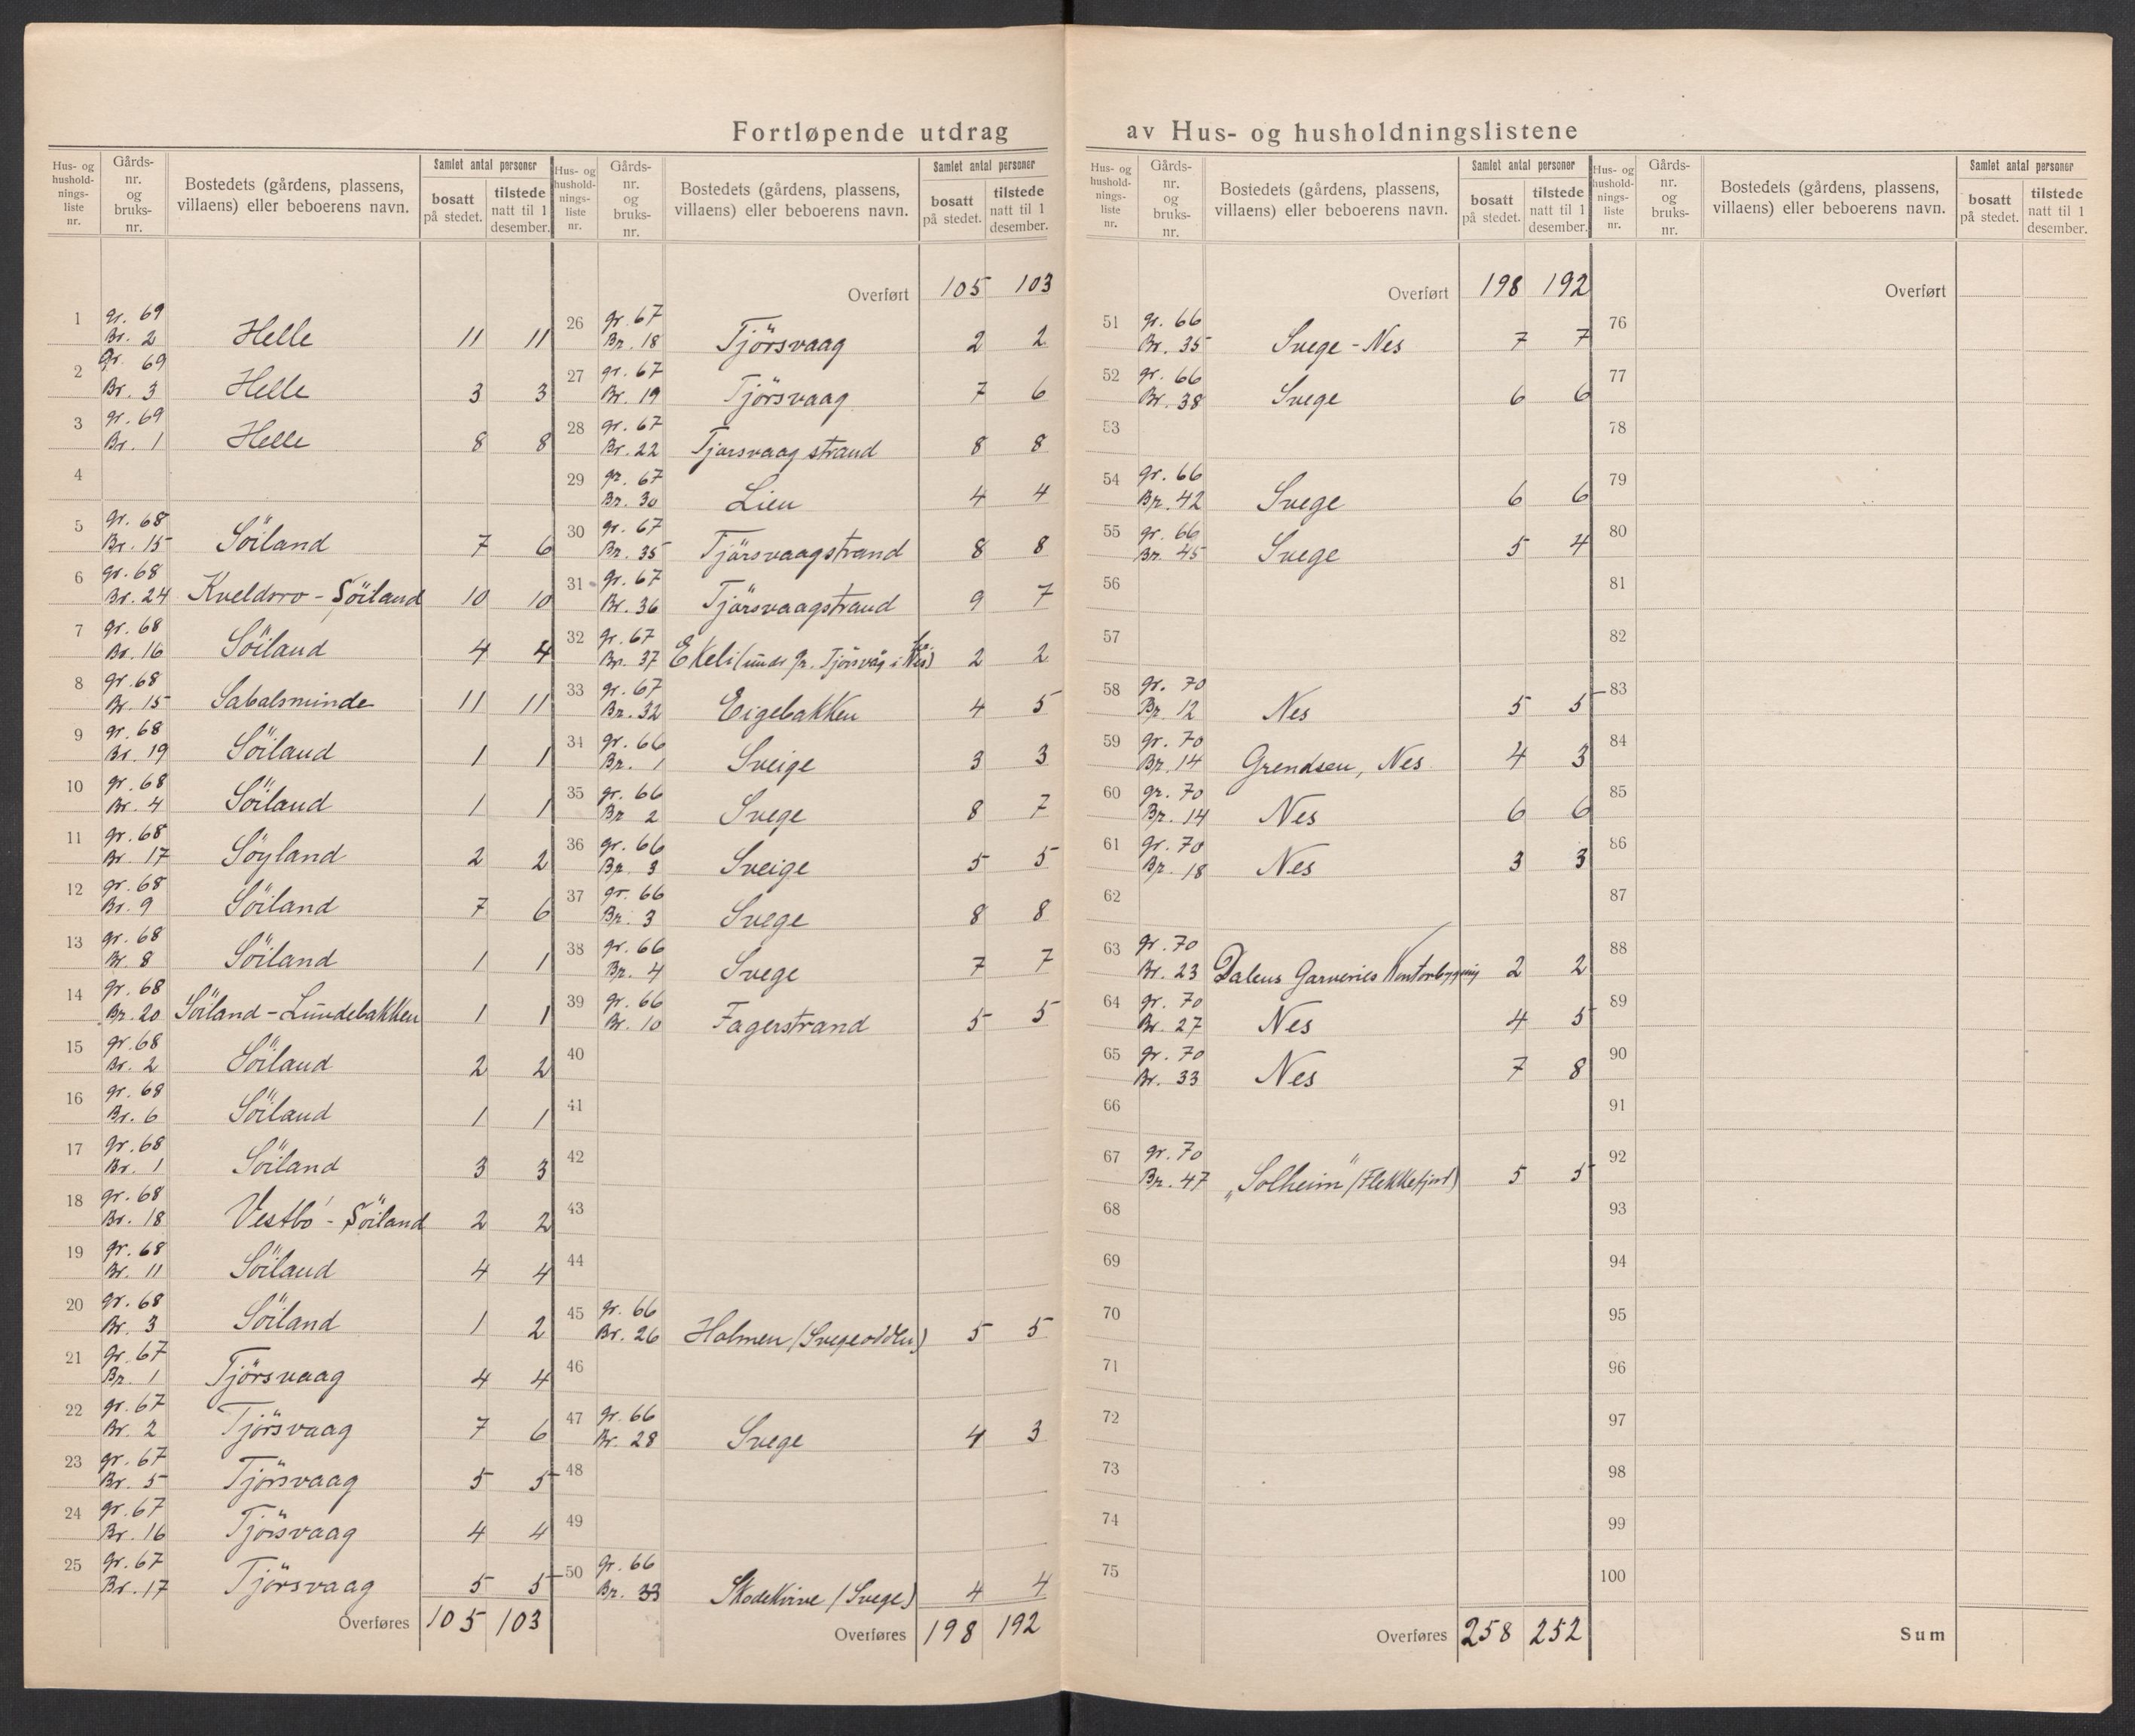 Fortløpende utdrag av Hus- og husholdningslistene
Hus- og hushold-nings-liste nr. | Gårds-nr. og bruks-nr. | Bostedets (gårdens, plassens, villaens) eller beboerens navn. | Samlet antal personer | bosatt på stedet. | tilstede natt til 1 desember.
1 gr. 69 Br. 2 Helle 11 11
2 Gr. 69 Br. 3 Helle 3 3
3 gr. 69 Br. 1 Helle 8 8
4
5 gr. 68 Br. 15 Söiland 7 6
6 gr. 68 Br. 24 Kveldsro - Söiland 10 10
7 gr. 68 Br. 16 Söiland 4 4
8 gr. 68 Br. 15 Sabalsminde 11 11
9 gr. 68 Br. 19 Söiland 1 1
10 gr. 68 Br. 4 Söiland 1 1
11 gr. 68 Br. 17 Söyland 2 2
12 gr. 68 Br. 9 Söiland 7 6
13 gr. 68 Br. 8 Söiland 1 1
14 gr. 68 Br. 20 Söiland - Lundebakken 1 1
15 gr. 68 Br. 2 Söiland 2 2
16 gr. 68 Br. 6 Söiland 1 1
17 gr. 68 Br. 1 Söiland 3 3
18 gr. 68 Br. 18 Vestbö - Söiland 2 2
19 gr. 68 Br. 11 Söiland 4 4
20 gr. 68 Br. 3 Söiland 1 2
21 gr. 67 Br. 1 Tjörsvaag 4 4
22 gr. 67 Br. 2 Tjörsvaag 7 6
23 gr. 67 Br. 5 Tjörsvaag 5 5
24 gr. 67 Br. 16 Tjörsvaag 4 4
25 gr. 67 Br. 17 Tjörsvaag 5 5
Overføres 105 103
Hus- og hushold-nings-liste nr. | Gårds-nr. og bruks-nr. | Bostedets (gårdens, plassens, villaens) eller beboerens navn. | Samlet antal personer | bosatt på stedet. | tilstede natt til 1 desember.
Overført 105 103
26 gr. 67 Br. 18 Tjörsvaag 2 2
27 gr. 67 Br. 19 Tjörsvaag 7 6
28 gr. 67 Br. 22 Tjorsvaag strand 8 8
29 gr. 67 Br. 30 Lien 4 4
30 gr. 67 Br. 35 Tjörsvaagstrand 8 8
31 gr. 67 Br. 36 Tjörsvaagstrand 9 7
32 gr. 67 Br. 37 Ekeli (under gr. Tjörsvåg i Nes) 2 2
33 gr. 67 Br. 32 Eigebakken 4 5
34 gr. 66 Br. 1 Sveige 3 3
35 gr. 66 Br 2 Svege 8 7
36 gr. 66 Br. 3 Sveige 5 5
37 gr. 66 Br. 3 Svege 8 8
38 gr. 66 Br. 4 Svege 7 7
39 gr. 66 Br. 10 Fagerstrand 5 5
40
41
42
43
44
45 gr. 66 Br. 26 Holmen (Svegeodden) 5 5
46
47 gr. 66 Br. 28 Svege 4 3
48
49
50 gr. 66 Br. 33 Skodekirve (Svege) 4 4
Overføres 198 192
Hus- og hushold-nings-liste nr. | Gårds-nr. og bruks-nr. | Bostedets (gårdens, plassens, villaens) eller beboerens navn. | Samlet antal personer | bosatt på stedet. | tilstede natt til 1 desember.
Overført 198 192
51 gr. 66 Br. 35 Svege - Nes 7 7
52 gr. 66 Br. 38 Svege 6 6
53
54 gr. 66 Br. 42 Svege 6 6
55 gr. 66 Br. 45 Svege 5 4
56
57
58 gr. 70 Br. 12 Nes 5 5
59 gr. 70 Br. 14 Grendsen, Nes 4 3
60 gr. 70 Br. 14 Nes 6 6
61 gr. 70 Br. 18 Nes 3 3
62
63 gr. 70 Br. 23 Dalens Garveries Kontorbygning 2 2
64 gr. 70 Br. 27 Nes 4 5
65 gr. 70 Br. 33 Nes 7 8
66
67 gr. 70 Br. 47 „Solheim" (Flekkefjord) 5 5
68
69
70
71
72
73
74
75
Overføres 258 252
Hus- og hushold-nings-liste nr. | Gårds-nr. og bruks-nr. | Bostedets (gårdens, plassens, villaens) eller beboerens navn. | Samlet antal personer | bosatt på stedet. | tilstede natt til 1 desember.
Overført
76
77
78
79
80
81
82
83
84
85
86
87
88
89
90
91
92
93
94
95
96
97
98
99
100
Sum